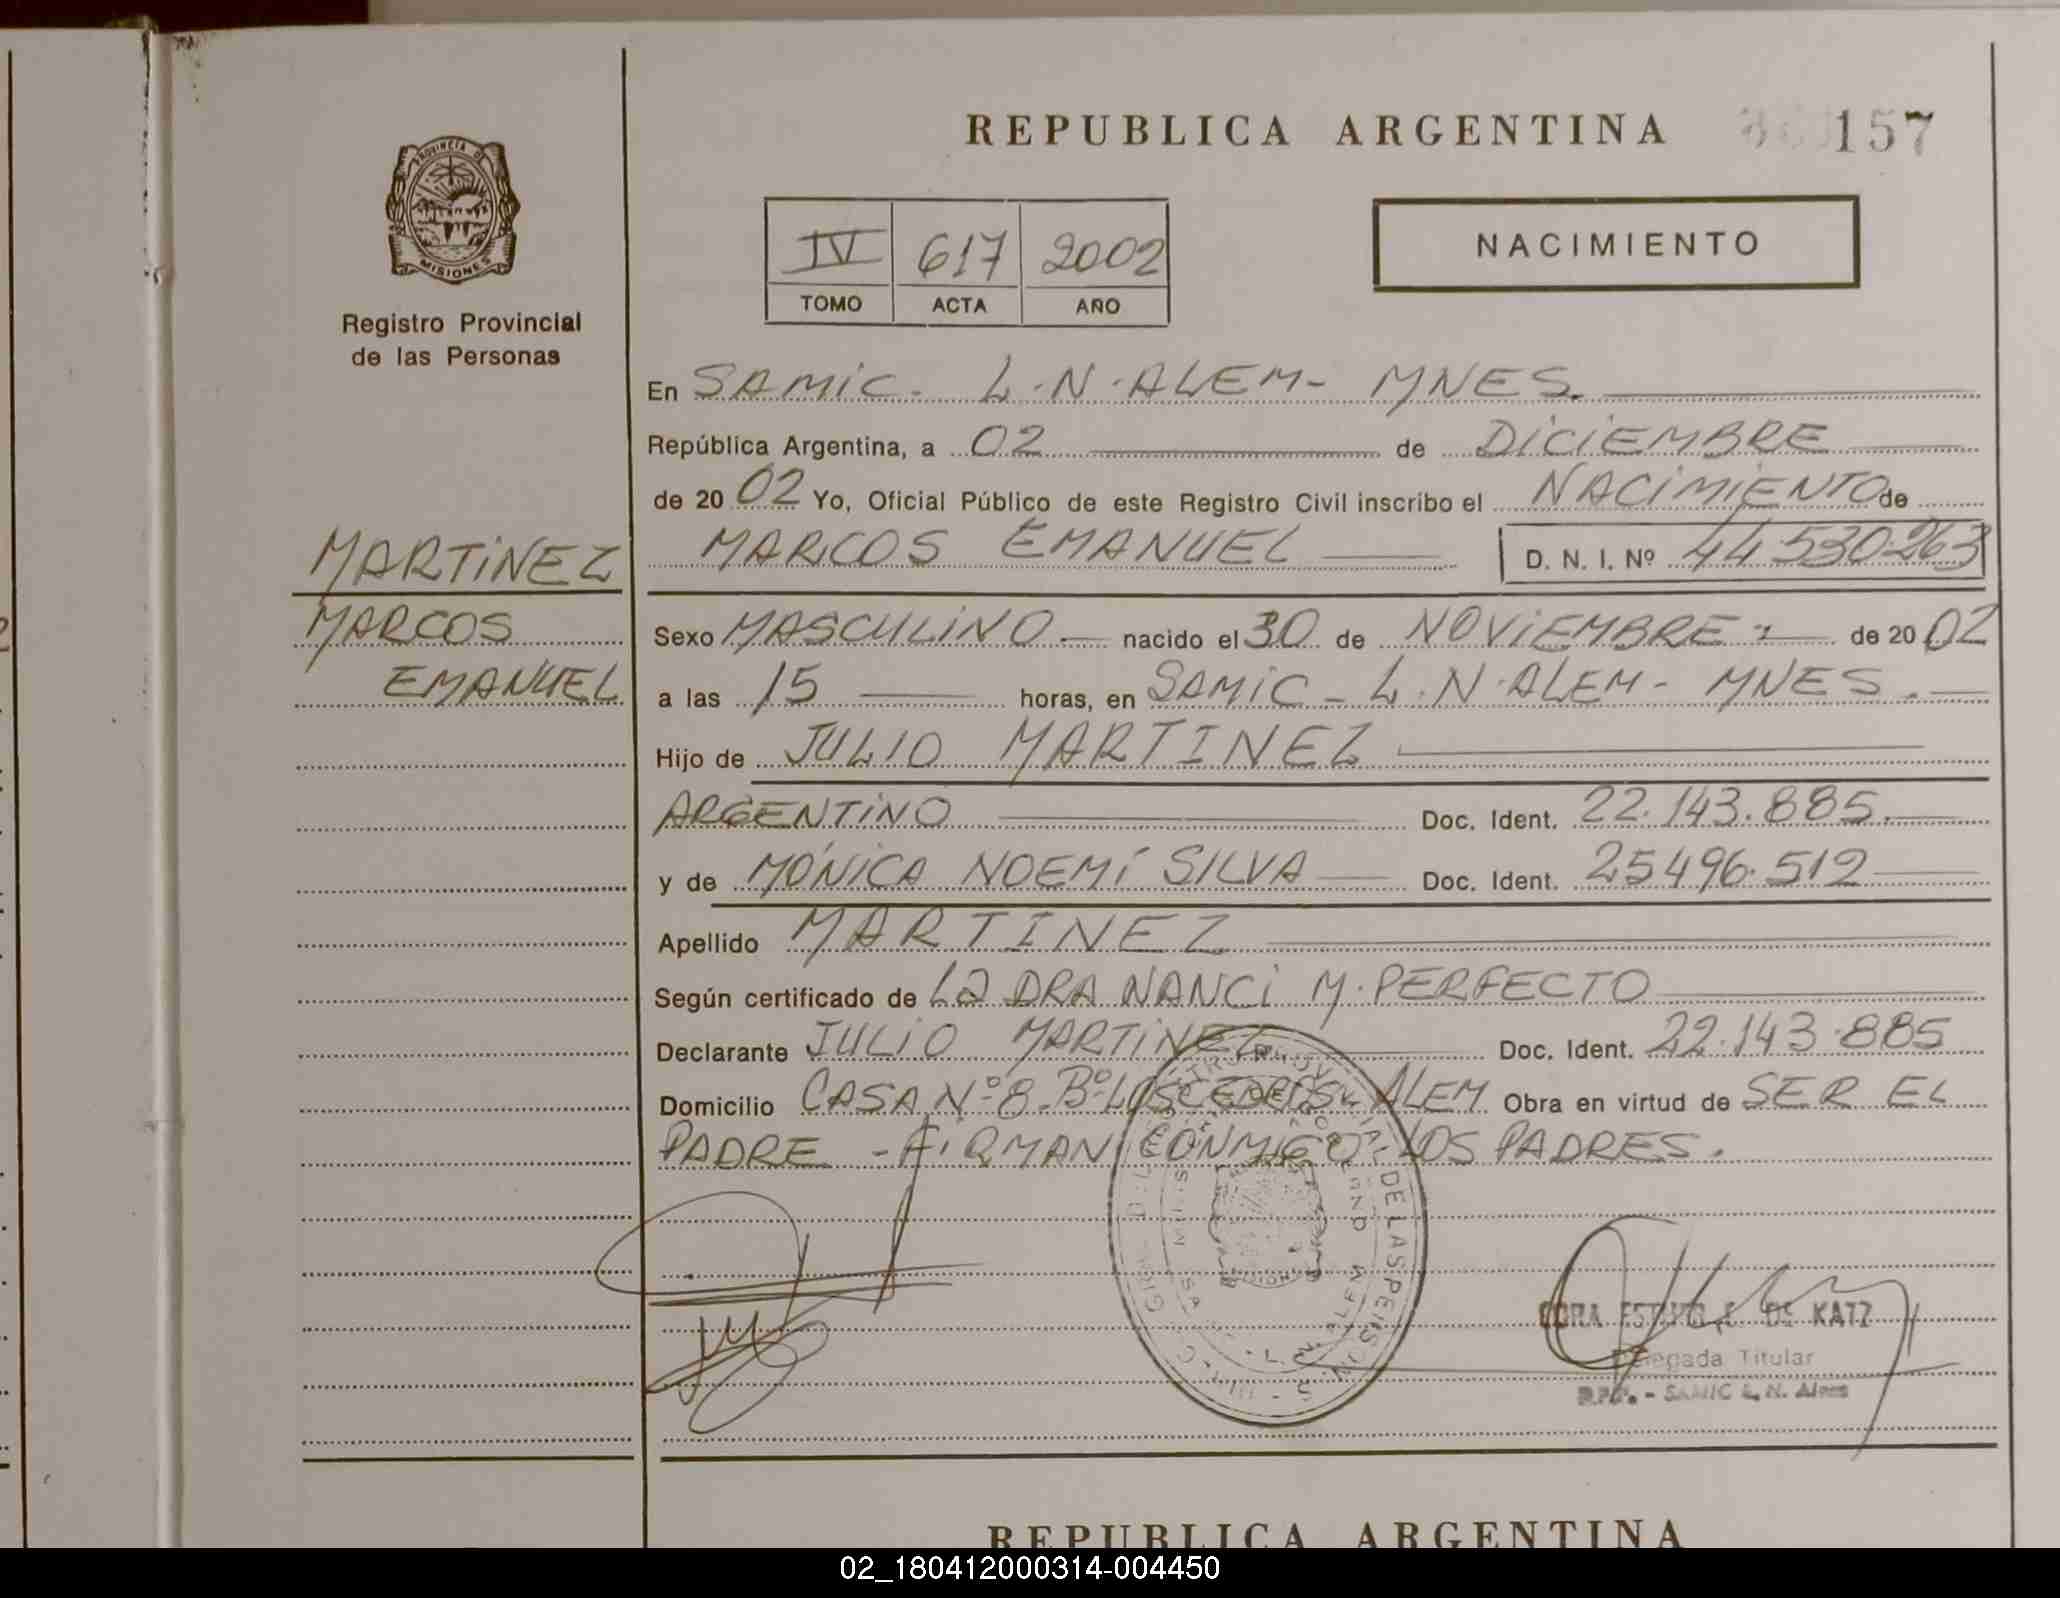 REPUBLICA ARGENTINA 157
PROVINCIA DE
MISIONES
Registro Provincial
de las Personas
IV 617 2002
TOMO ACTA AÑO
NACIMIENTO
En SAMIC. L.N.ALEM- MNES.
República Argentina, a 02 de DICIEMBRE
de 20 02 Yo, Oficial Público de este Registro Civil inscribo el NACIMIENTO de
MARTINEZ
MARCOS EMANUEL D. N. I. Nº 44.530.263
MARCOS
EMANUEL
Sexo MASCULINO.- nacido el 30 de NOVIEMBRE.- de 20 02
a las 15 horas, en SAMIC - L.N.ALEM - MNES.-
Hijo de JULIO MARTINEZ
ARGENTINO Doc. Ident. 22.143.885.-
y de MÓNICA NOEMÍ SILVA Doc. Ident. 25496.512
Apellido MARTINEZ
Según certificado de La DRA NANCI M. PERFECTO
Declarante JULIO MARTINEZ Doc. Ident. 22.143.885
Domicilio CASA Nº 8. Bº LOS CEDROS- ALEM Obra en virtud de SER EL
PADRE - FIRMAN CONMIGO LOS PADRES.
DE KATZ
Delegada Titular
SAMIC L. N. Alem
REPUBLICA ARGENTINA
02_180412000314-004450